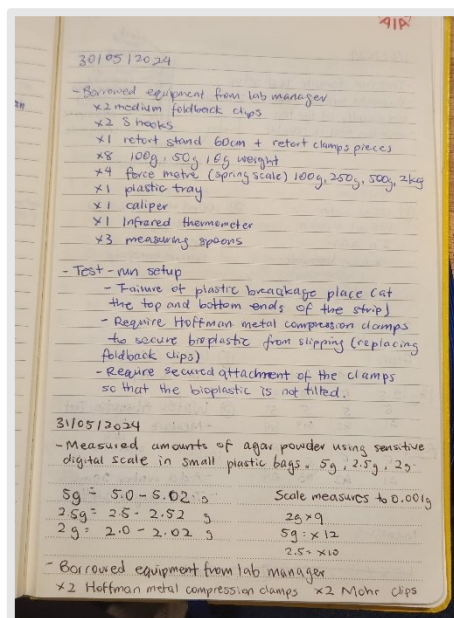 41A
30/05/2024
- Borrowed equipment from lab manager
x2 medium foldback clips
x2 S hooks
x1 retort stand 60cm + retort clamps pieces
x8 100g, 50g, 10g weight
x4 force metre (spring scale) 100g, 250g, 500g, 2kg
x1 plastic tray
x1 caliper
x1 Infrared thermometer
x3 measuring spoons
- Test-run setup
- Failure of plastic breackage place (at
the top and bottom ends of the strip)
- Require Hoffman metal compression clamps
to secure bioplastic from slipping (replacing
foldback clips)
- Require secured attachment of the clamps
so that the bioplastic is not tilted.
31/05/2024
- Measured amounts of agar powder using sensitive
digital scale in small plastic bags. 5g, 2.5g, 2g.
5g = 5.0 - 5.02 g Scale measures to 0.001g
2.5g = 2.5 - 2.52 g 2g x 9
2g = 2.0 - 2.02 g 5g = x 12
2.5 = x10
- Borrowed equipment from lab manager
x2 Hoffman metal compression clamps x2 Mohr clips